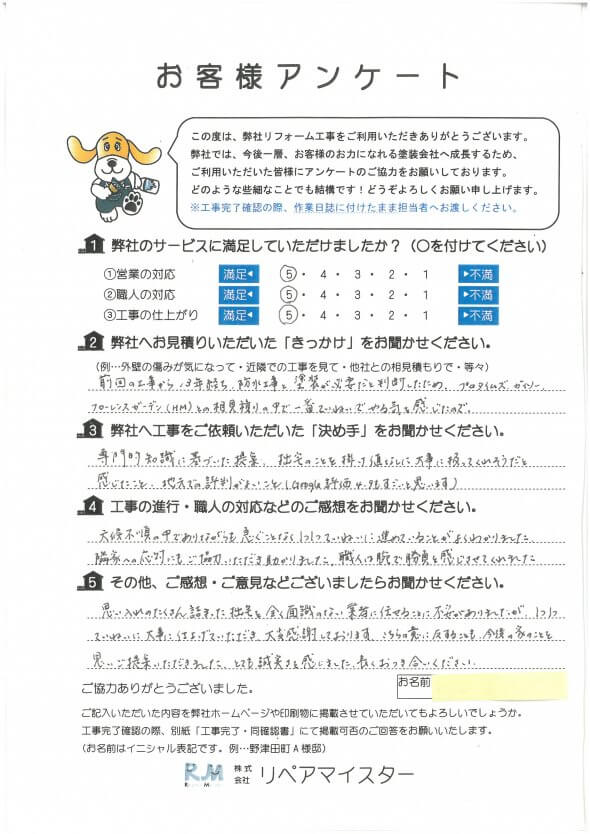 お客様アンケート
この度は、弊社リフォーム工事をご利用いただきありがとうございます。
弊社では、今後一層、お客様のお力になれる塗装会社へ成長するため、
ご利用いただいた皆様にアンケートのご協力をお願いしております。
どのような些細なことでも結構です！どうぞよろしくお願い申し上げます。
※工事完了確認の際、作業日誌に付けたまま担当者へお渡しください。
1 弊社のサービスに満足していただけましたか？（〇を付けてください）
①営業の対応 満足◀ 5・4・3・2・1 ▶不満
②職人の対応 満足◀ 5・4・3・2・1 ▶不満
③工事の仕上がり 満足◀ 5・4・3・2・1 ▶不満
2 弊社へお見積りいただいた「きっかけ」をお聞かせください。
（例…外壁の傷みが気になって・近隣での工事を見て・他社との相見積もりで・等々）
前回の工事から13年経ち、防水工事と塗装が必要だと判断したため、プロタイムズ
フローレンスガーデン(HM)との相見積りの中で一番ていねいでやる気を感じたので。
3 弊社へ工事をご依頼いただいた「決め手」をお聞かせください。
専門的知識に基づいた提案、拙宅のことを掛け値なしに大事に扱ってくれそうだと
感じたこと、地元での評判がよいこと(Google評価 すごいと思います)
4 工事の進行・職人の対応などのご感想をお聞かせください。
天候不順の中でありながらも急ぐことなく1つ1つていねいに進めていることがよくわかりました
隣家への応対にもご協力いただき助かりました、職人は腕で勝負を感じさせてくれました
5 その他、ご感想・ご意見などございましたらお聞かせください。
思い入れのたくさん詰まった拙宅を全く面識のない業者に任せることに不安がありましたが、1つ1つ
ていねいに大事に仕上げていただき、大変感謝しております。こちらの意に反することも、今後の家のことを
思いご提案いただきました、とても誠実さを感じました、長くおつき合いください
ご協力ありがとうございました。
お名前
ご記入いただいた内容を弊社ホームページや印刷物に掲載させていただいてもよろしいでしょうか。
工事完了確認の際、別紙「工事完了・同確認書」にて掲載可否のご回答をお願いいたします。
（お名前はイニシャル表記です。例…野津田町A様邸）
RM 株式会社 リペアマイスター